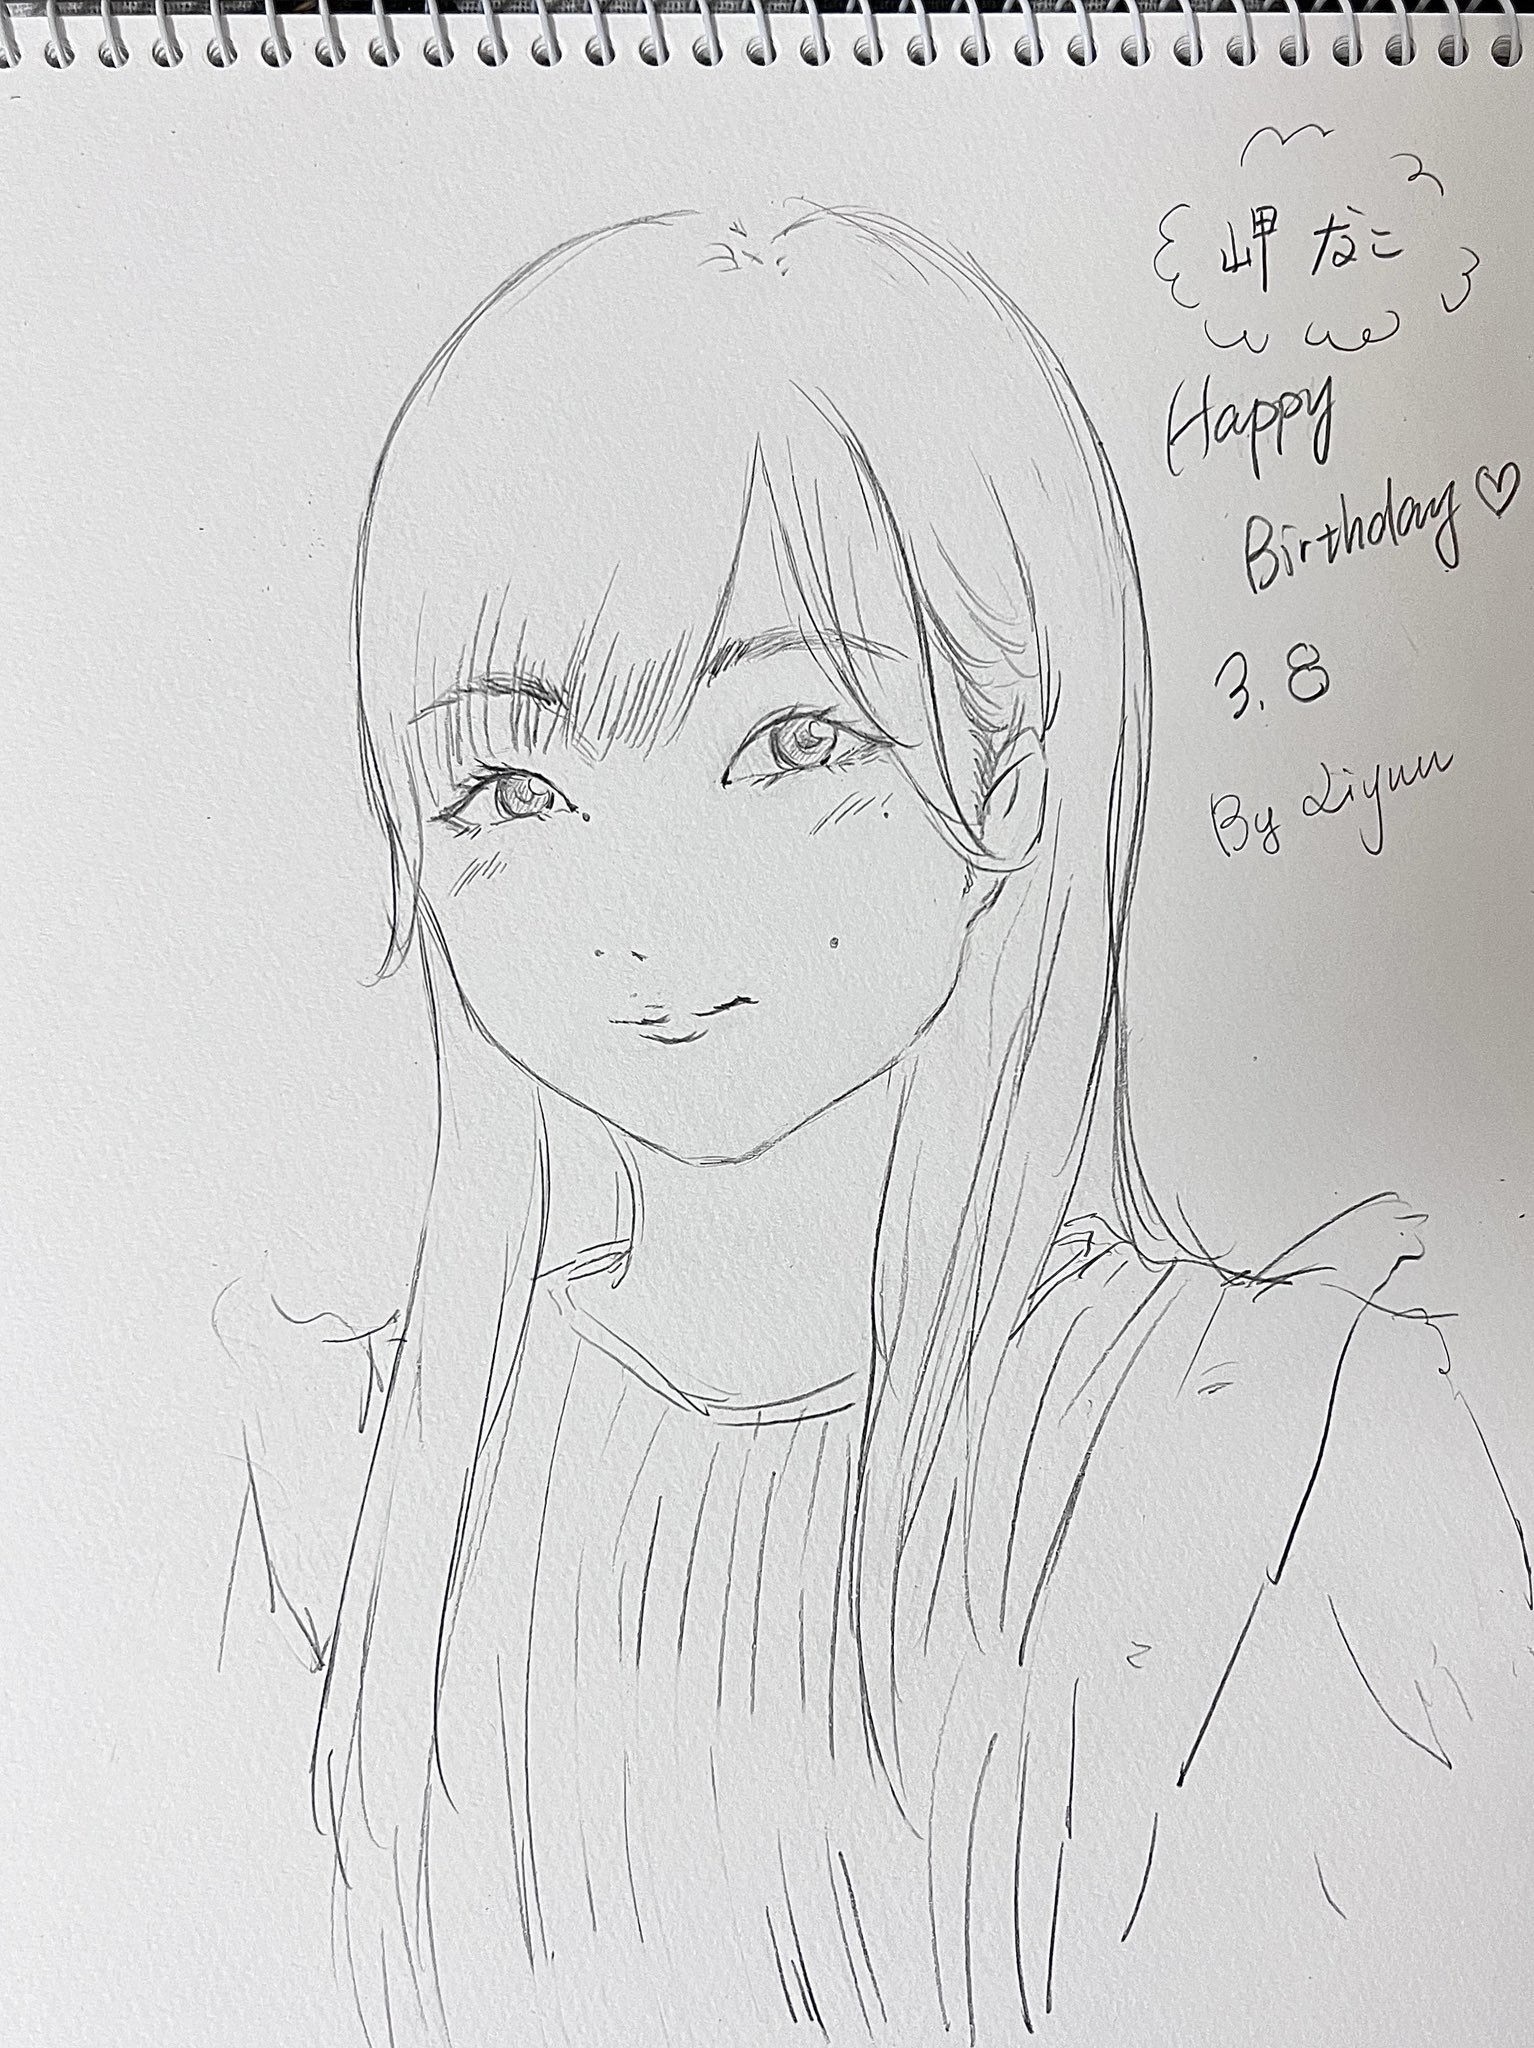 岬 なこ
Happy
Birthday♡
3.8
By Liyuu